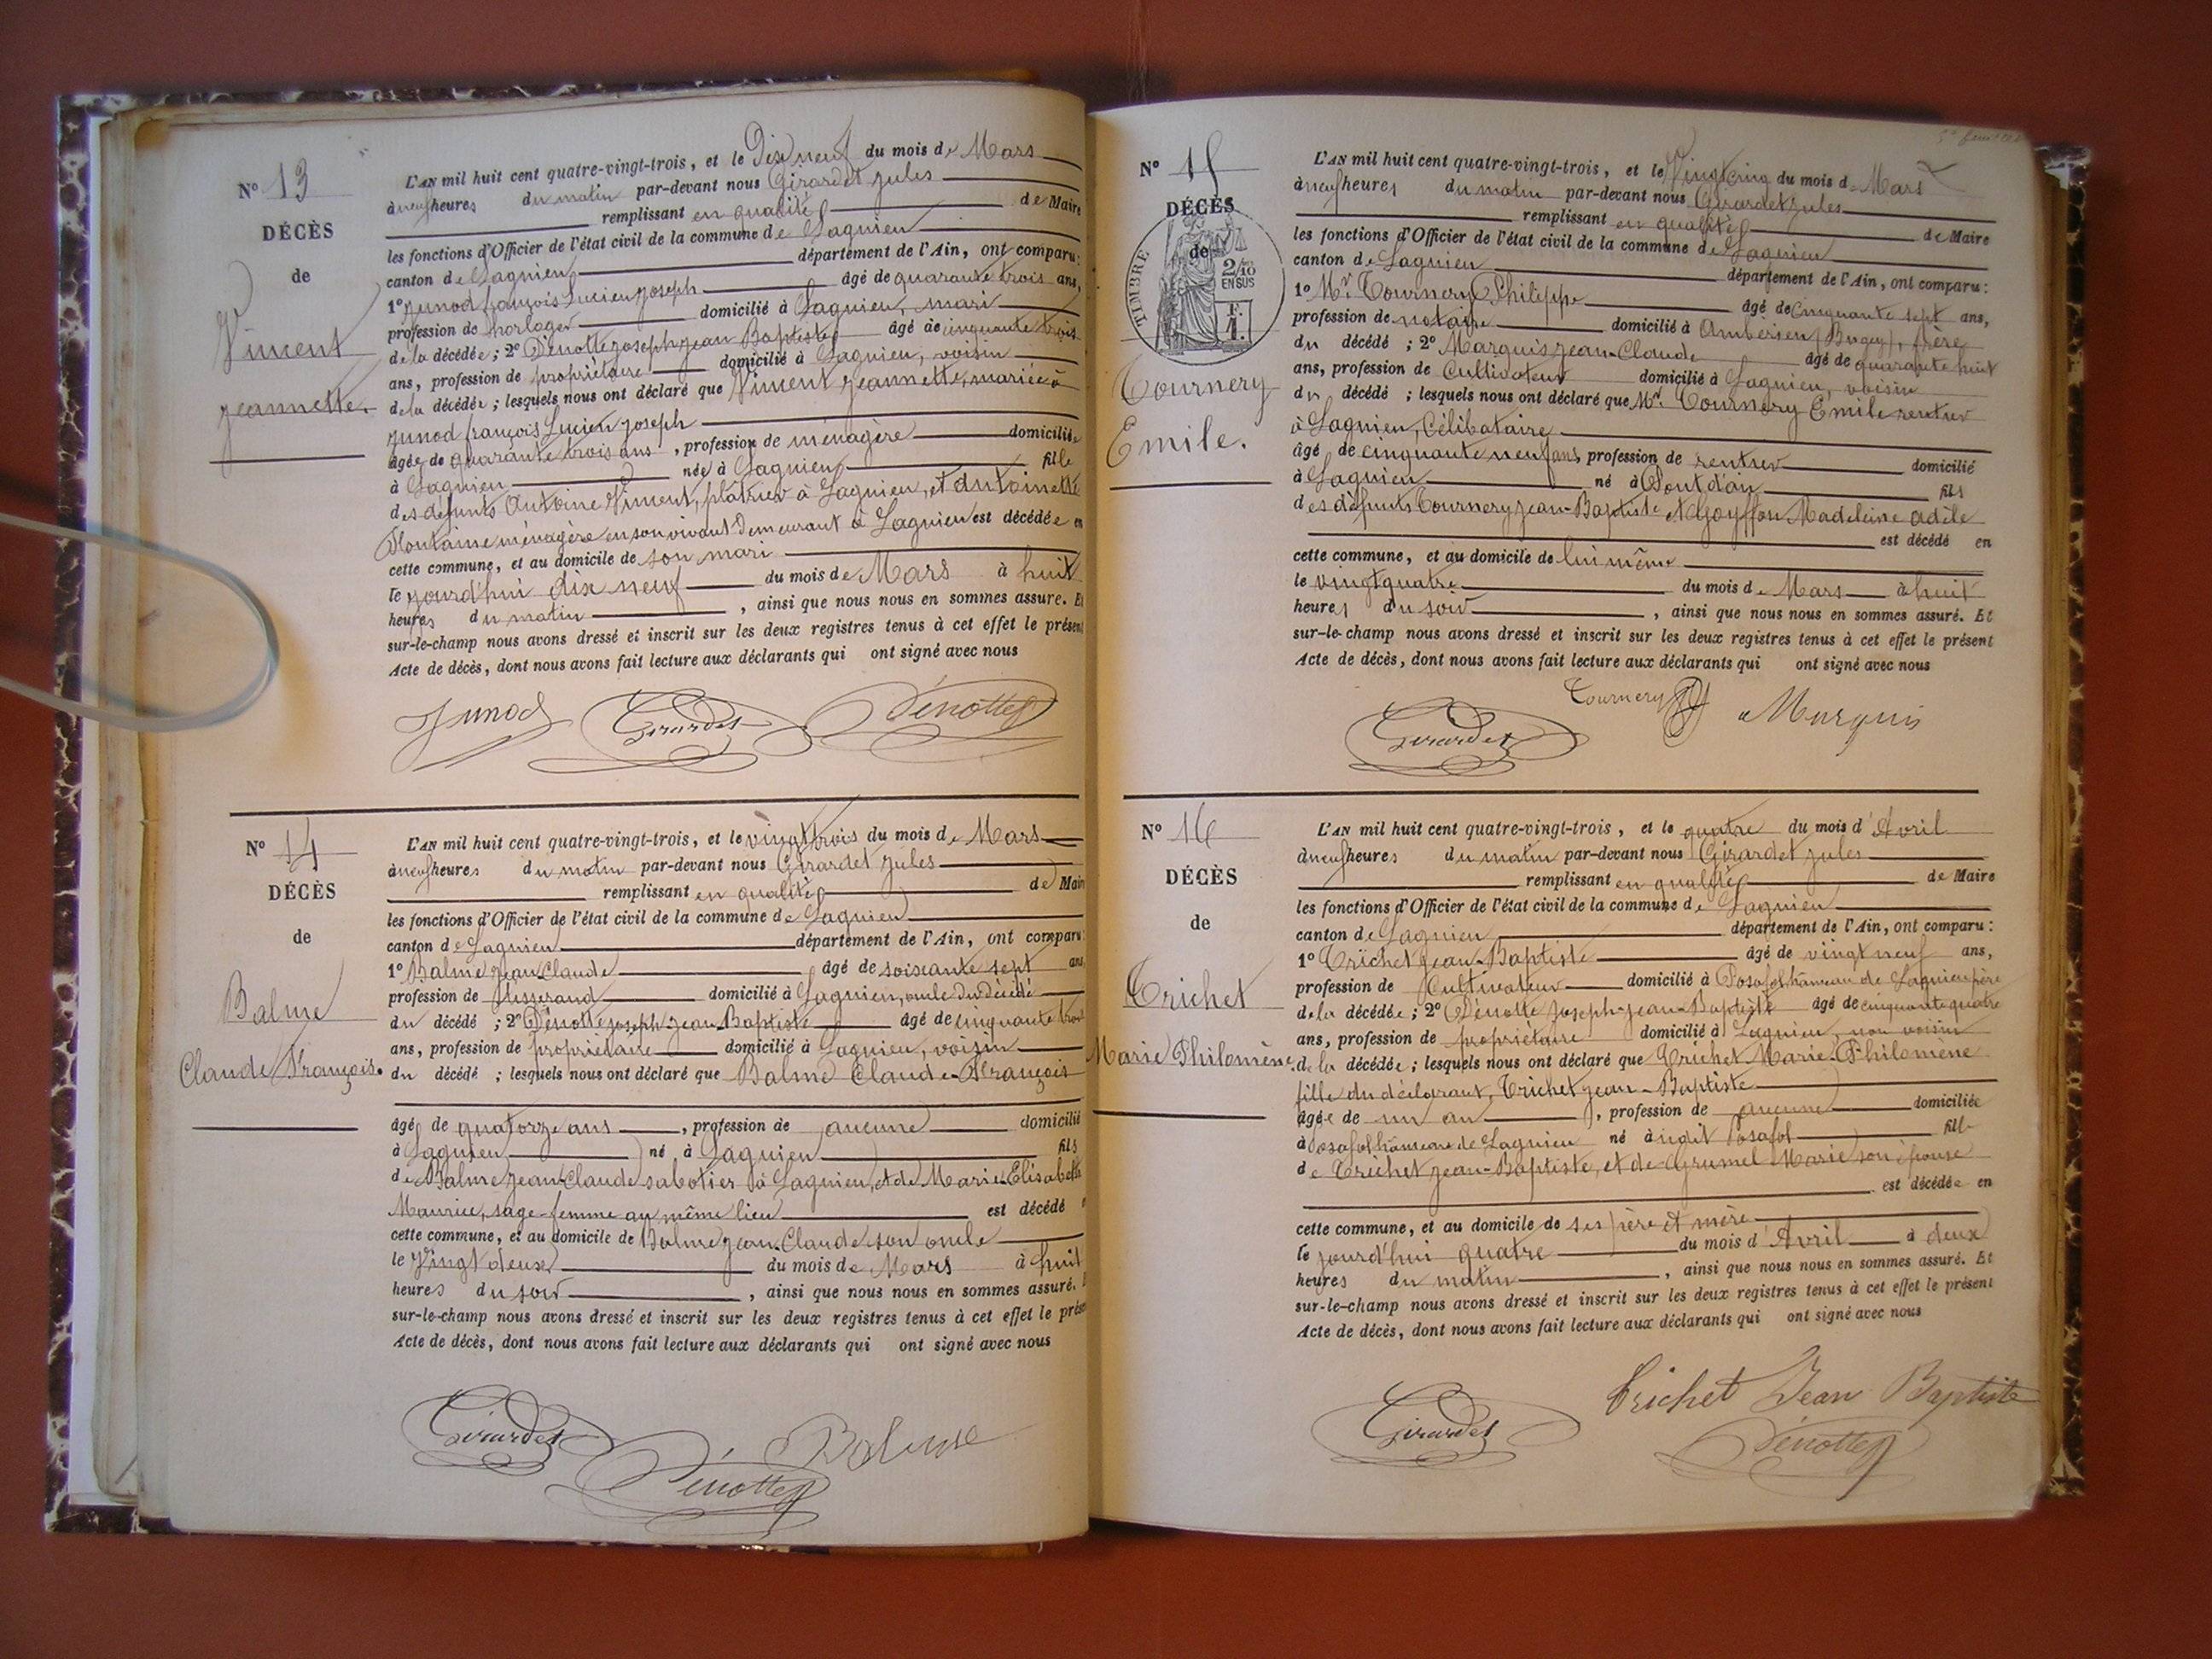 N° 13
DÉCÈS
de
Vincent
Jeannette.
L'AN mil huit cent quatre-vingt-trois, et le Dix neuf du mois de Mars
à neuf heures du matin par-devant nous Girardet Jules
remplissant en qualité de Maire
les fonctions d'Officier de l'état civil de la commune de Lagnieu
canton de Lagnieu département de l'Ain, ont comparu:
1° Junod françois Lucien Joseph âgé de quarante trois ans,
profession de horloger domicilié à Lagnieu, mari
de la décédée; 2° Dénotte joseph jean Baptiste âgé de cinquante trois
ans, profession de propriétaire domicilié à Lagnieu, voisin
de la décédée; lesquels nous ont déclaré que Vincent Jeannette, mariée à
Junod françois Lucien joseph
âgée de quarante trois ans, profession de ménagère domiciliée
à Lagnieu née à Lagnieu fille
des défunts Antoine Vincent, plâtrier à Lagnieu, et Antoinette
Fontaine ménagère en son vivant demeurant à Lagnieu est décédée en
cette commune, et au domicile de son mari
le jourd'hui dix neuf du mois de Mars à huit
heures du matin, ainsi que nous nous en sommes assuré. Et
sur-le-champ nous avons dressé et inscrit sur les deux registres tenus à cet effet le présent
Acte de décès, dont nous avons fait lecture aux déclarants qui ont signé avec nous
Junod Girardet Dénotte
N° 14
DÉCÈS
de
Balme
Claude François.
L'AN mil huit cent quatre-vingt-trois, et le vingt trois du mois de Mars
à neuf heures du matin par-devant nous Girardet Jules
remplissant en qualité de Maire
les fonctions d'Officier de l'état civil de la commune de Lagnieu
canton de Lagnieu département de l'Ain, ont comparu:
1° Balme Jean Claude âgé de soixante sept ans
profession de tisserand domicilié à Lagnieu, oncle du décédé
du décédé; 2° Dénotte joseph jean Baptiste âgé de cinquante trois
ans, profession de propriétaire domicilié à Lagnieu, voisin
du décédé; lesquels nous ont déclaré que Balme Claude François
âgé de quatorze ans, profession de aucune domicilié
à Lagnieu né à Lagnieu fils
de Balme Jean Claude sabotier à Lagnieu, et de Marie Elisabeth
Maurice, sage-femme au même lieu est décédé
cette commune, et au domicile de Balme Jean Claude son oncle
le Vingt deux du mois de Mars à huit
heures du soir, ainsi que nous nous en sommes assuré.
sur-le-champ nous avons dressé et inscrit sur les deux registres tenus à cet effet le prése
Acte de décès, dont nous avons fait lecture aux déclarants qui ont signé avec nous
Girardet Dénotte Balme
N° 15
DÉCÈS
de
TIMBRE 2/10 EN SUS
F. 1.
Tournery
Emile.
L'AN mil huit cent quatre-vingt-trois, et le Vingt cinq du mois de Mars
à neuf heures du matin par-devant nous Girardet Jules
remplissant en qualité de Maire
les fonctions d'Officier de l'état civil de la commune de Lagnieu
canton de Lagnieu département de l'Ain, ont comparu:
1° Mr. Tournery Philippe âgé de Cinquante sept ans,
profession de notaire domicilié à Ambérieu (Bugey), frère
du décédé; 2° Marquis Jean-Claude âgé de quarante huit
ans, profession de Cultivateur domicilié à Lagnieu, voisin
du décédé; lesquels nous ont déclaré que Mr. Tournery Emile rentier
à Lagnieu, Célibataire
âgé de cinquante neuf ans, profession de rentier domicilié
à Lagnieu né à Pont d'ain fils
des défunts Tournery Jean-Baptiste et Goyffon Madeleine adèle
est décédé en
cette commune, et au domicile de lui même
le vingt quatre du mois de Mars à huit
heures du soir, ainsi que nous nous en sommes assuré. Et
sur-le-champ nous avons dressé et inscrit sur les deux registres tenus à cet effet le présent
Acte de décès, dont nous avons fait lecture aux déclarants qui ont signé avec nous
Tournery Marquis
Girardet
N° 16
DÉCÈS
de
Trichet
Marie Philomène.
L'AN mil huit cent quatre-vingt-trois, et le quatre du mois d'Avril
à neuf heures du matin par-devant nous Girardet Jules
remplissant en qualité de Maire
les fonctions d'Officier de l'état civil de la commune de Lagnieu
canton de Lagnieu département de l'Ain, ont comparu:
1° Trichet Jean-Baptiste âgé de vingt neuf ans,
profession de Cultivateur domicilié à Posafol hameau de Lagnieu père
de la décédée; 2° Dénotte Joseph-Jean-Baptiste âgé de cinquante quatre
ans, profession de propriétaire domicilié à Lagnieu, non voisin
de la décédée; lesquels nous ont déclaré que Trichet Marie-Philomène
fille du déclarant, Trichet Jean-Baptiste
âgée de un an, profession de aucune domiciliée
à Posafol hameau de Lagnieu né à Posafol fille
de Trichet Jean-Baptiste, et de Grumel Marie son épouse
est décédée en
cette commune, et au domicile de ses père et mère
le jourd'hui quatre du mois d'Avril à deux
heures du matin, ainsi que nous nous en sommes assuré. Et
sur-le-champ nous avons dressé et inscrit sur les deux registres tenus à cet effet le présent
Acte de décès, dont nous avons fait lecture aux déclarants qui ont signé avec nous
Trichet Jean Baptiste
Girardet Dénotte